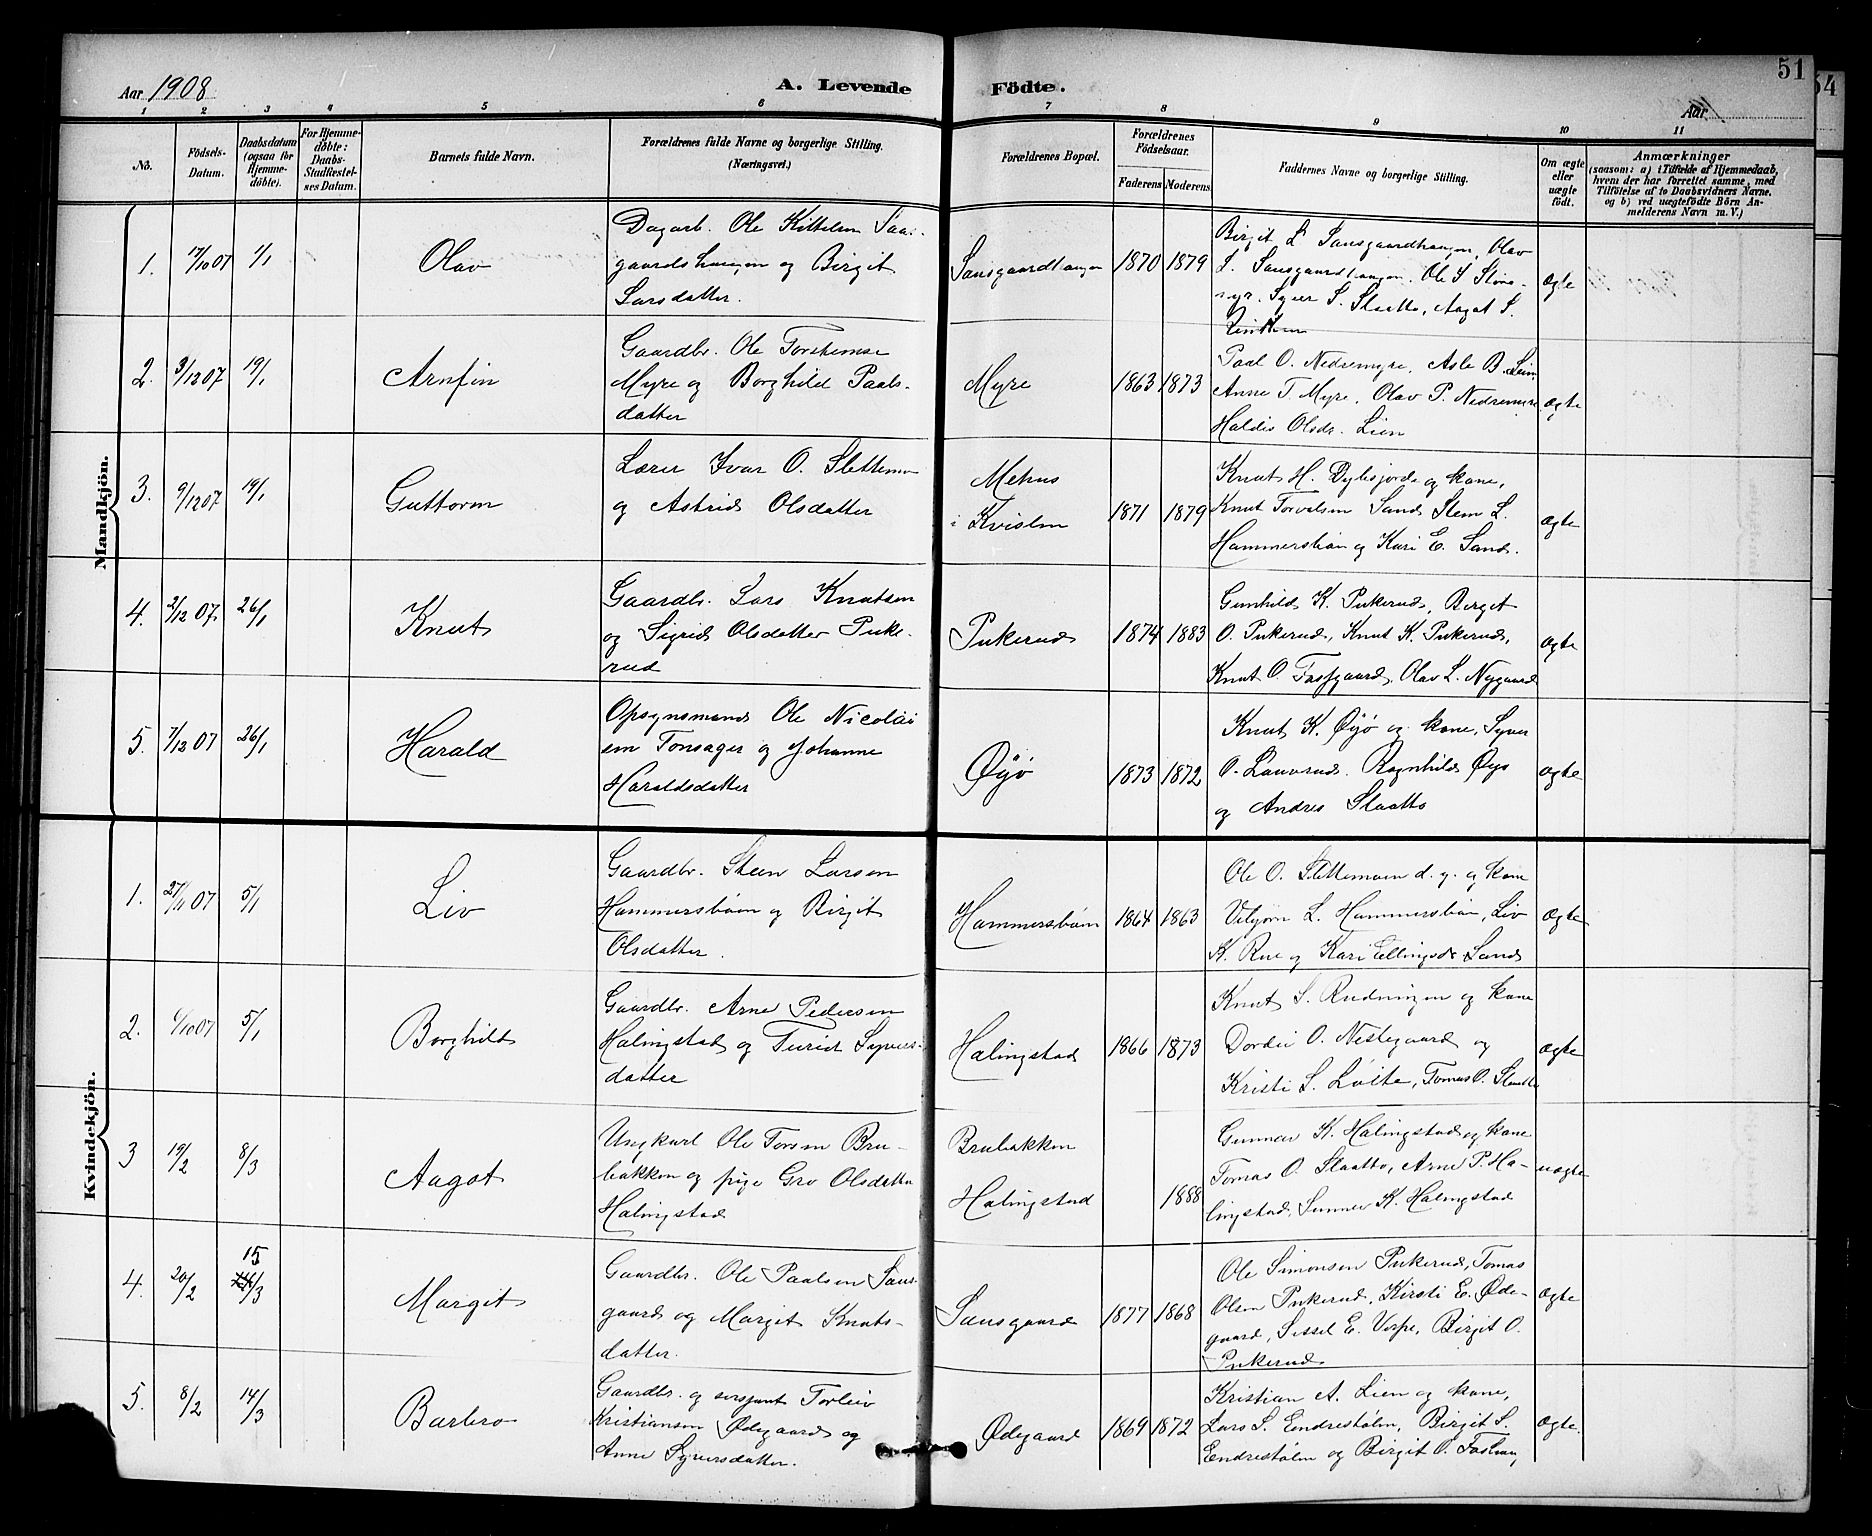 51
54
Aar 1908
A. Levende Födte.
Aar
1 2 3 4 5 6 7 8 9 10 11
No.
Födsels-
Datum.
Daabsdatum
(ogsaa for
Hjemme-
döbte).
For Hjemme-
döbte:
Daabs-
Stadfæstel-
ses Datum.
Barnets fulde Navn.
Forældrenes fulde Navne og borgerlige Stilling.
(Næringsvei.)
Forældrenes Bopæl.
Forældrenes
Födselsaar.
Faderens Moderens
Faddernes Navne og borgerlige Stilling.
Om ægte
eller
uægte
födt.
Anmærkninger
(saasom: a) i Tilfælde af Hjemmedaab,
hvem der har forrettet samme, med
Tilföielse af to Daabsvidners Navne.
og b) ved uægtefödte Börn An-
melderens Navn m. V.)
Mandkjön.
1. 17/10 07 1/1 Olav
Dagarb. Ole Kittelsen Saus-
gaardshaugen og Birgit
Larsdatter.
Sausgaardhaugen 1870 1879
Birgit L. Sausgaardhaugen, Olav
L. Sausgaardhaugen. Ole S.
Syver S. Slaatto, Aagot S.
ægte
2. 3/12 07 19/1 Arnfin
Gaardbr. Ole Torstensen
Myre og Borghild Paals-
datter
Myre 1863 1873
Paal O. Nedremyre, Asle B. Lien,
Anne T. Myre, Olav P. Nedremyre
Haldis Olsdr. Lien
ægte
3. 9/12 07 19/1 Guttorm
Lærer Ivar O. Slettemoen
og Astrid Olsdatter
Mehus
i Kvislen 1871 1879
Knut H. Dylisjorde og kone,
Knut Torvalsen Sand, Sten L.
Hammersbøen og Kari E. Sand.
ægte
4. 2/12 07. 26/1 Knut
Gaardbr. Lars Knutsen
og Sigrid Olsdatter Puke-
rud
Pukerud 1874 1883
Gunhild K. Pukerud, Birgit
O. Pukerud, Knut K. Pukerud,
Knut O. Trøfgaard, Olav L. Nygaard
ægte
5. 7/12 07 26/1 Harald
Opsynsmand Ole Nicolai
sen Tonsager og Johanne
Haraldsdatter
Øyø 1873 1872
Knut K. Øyø og kone, Syver
O. Lauvrud. Ragnhild Øyø
og Andres Slaatto
ægte
Kvindekjön.
1. 27/11 07 5/1 Liv
Gaardbr. Steen Larsen
Hammersbøen og Birgit
Olsdatter.
Hammersbøen 1864 1863
Ole O. Slettemoen d. y. og kone
Vebjørn L. Hammersbøen, Liv
K. Rue og Kari Ellingsdr Sand
ægte
2. 6/10 07 5/1 Borghild
Gaardbr. Arne Pedersen
Halingstad og Turid Syvers-
datter
Halingstad 1866 1873
Knut S. Rudningen og kone
Dordei O. Nestegaard og
Kristi S. Løite, Tomas O. Slaatto
ægte
3 19/2 8/3 Aagot
Ungkarl Ole Torsen Bru-
bakken og pige Gro Olsdatter
Halingstad
Brubakken
Halingstad 1888
Gunnar K. Halingstad og kone
Tomas O. Slaatto, Arne P. Ha-
lingstad, Gunner K. Halingstad
uægte
4. 20/2 15/3 Margit
Gaardbr. Ole Paalsen Saus-
gaard og Margit Knuts-
datter.
Sausgaard 1877 1868
Ole Simonsen Pukerud, Tomas
Olsen Pukerud, Kirsti E. Øde-
gaard, Sissel E. Verpe, Birgit O.
Pukerud
ægte
5. 8/2 14/3 Barbro
Gaardbr. og sersjant Torleiv
Kristiansen Ødegaard og
Anne Syversdatter.
Ødegaard 1869 1872
Kristian A. Lien og kone,
Lars S. Endrestølen, Birgit S.
Endrestølen og Birgit O.
ægte.